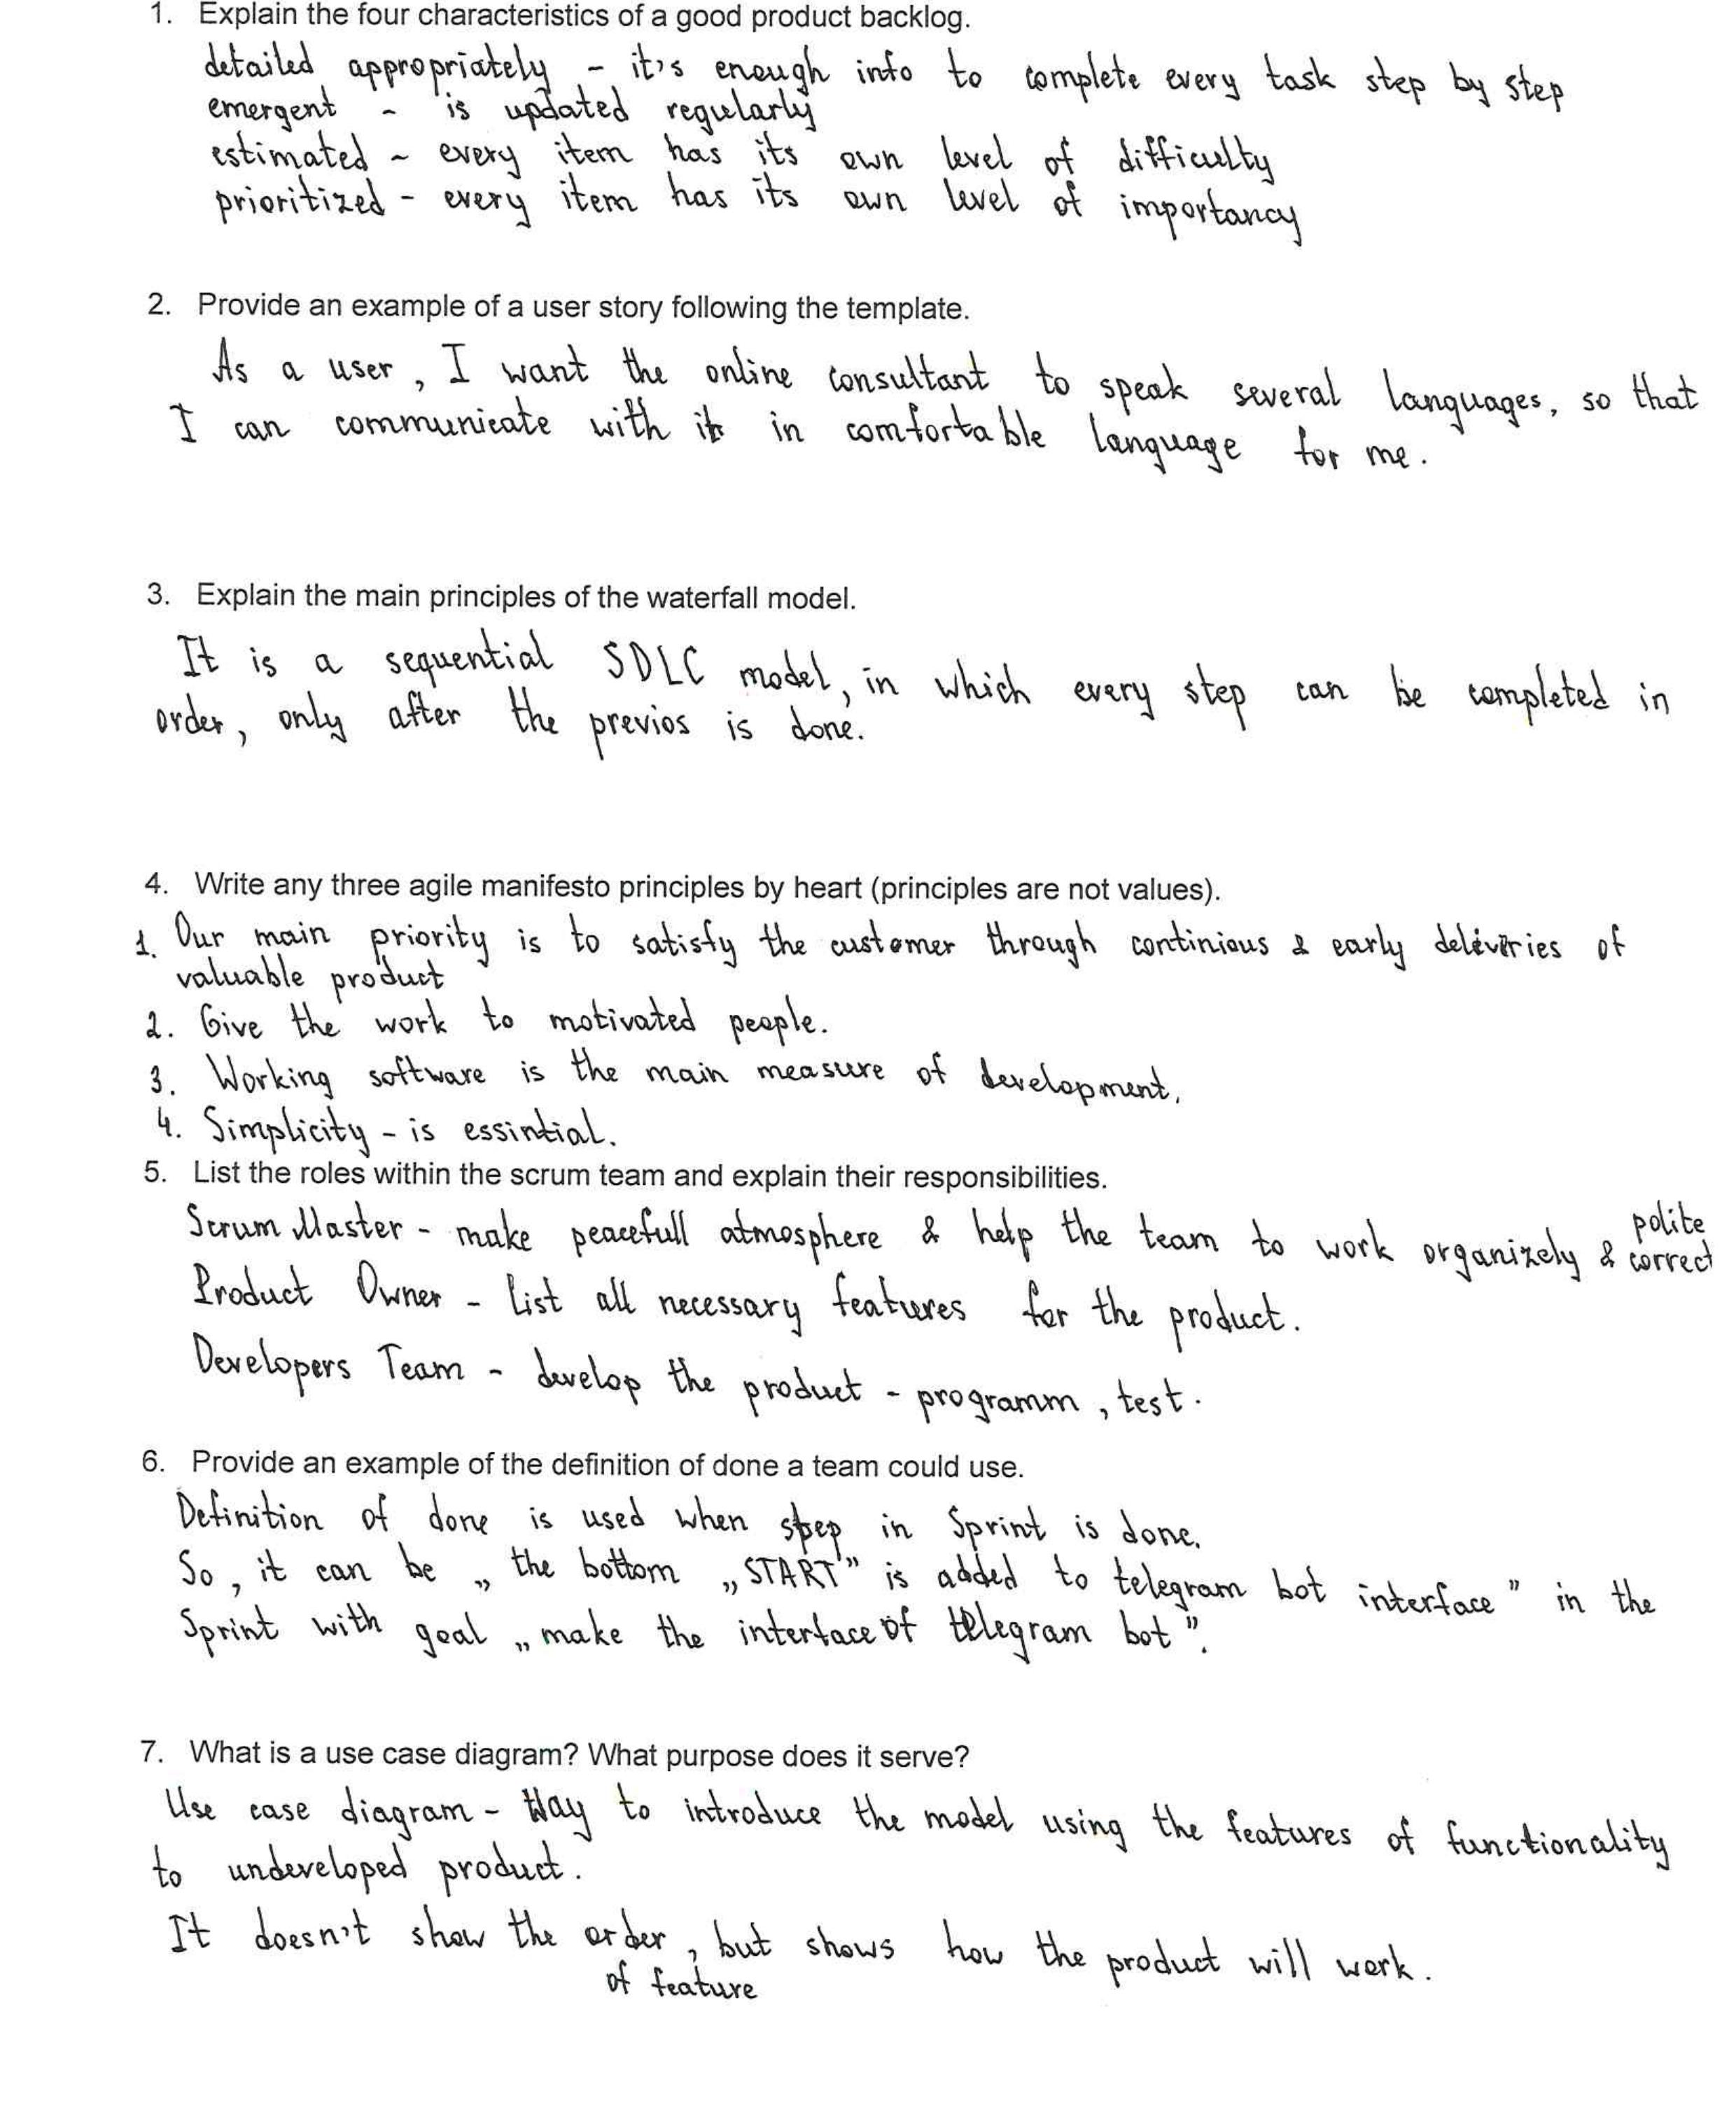 1. Explain the four characteristics of a good product backlog.
detailed appropriately - it's enough info to complete every task step by step
emergent - is updated regularly
estimated - every item has its own level of difficulty
prioritized - every item has its own level of importancy
2. Provide an example of a user story following the template.
As a user, I want the online consultant to speak several languages, so that
I can communicate with it in comfortable language for me.
3. Explain the main principles of the waterfall model.
It is a sequential SDLC model, in which every step can be completed in
order, only after the previos is done.
4. Write any three agile manifesto principles by heart (principles are not values).
1. Our main priority is to satisfy the customer through continious & early deliveries of
valuable product
2. Give the work to motivated people.
3. Working software is the main measure of development.
4. Simplicity - is essintial.
5. List the roles within the scrum team and explain their responsibilities.
Scrum Master - make peacefull atmosphere & help the team to work organizely & polite correct
Product Owner - list all necessary features for the product.
Developers Team - develop the product - programm, test.
6. Provide an example of the definition of done a team could use.
Definition of done is used when step in Sprint is done.
So, it can be „ the bottom „START" is added to telegram bot interface" in the
Sprint with goal „make the interface of telegram bot".
7. What is a use case diagram? What purpose does it serve?
Use case diagram - Way to introduce the model using the features of functionality
to undeveloped product.
It doesn't show the order, but shows how the product will work.
of feature